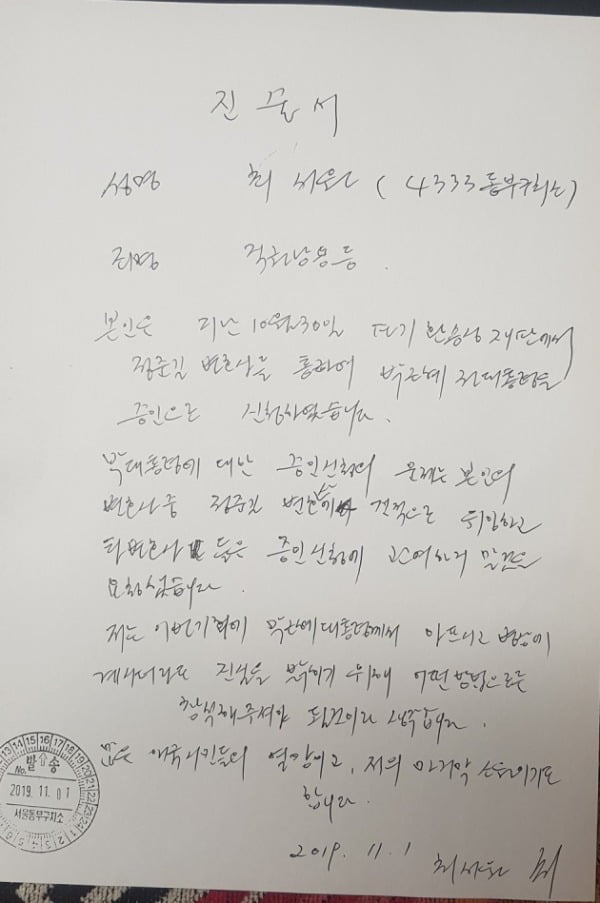 진술서
성명 최서원 (4333 동부구치소)
죄명 직권남용 등.
본인은 지난 10월 30일 재판에서
정준길 변호사를 통하여 박근혜 전대통령을
증인으로 신청하였습니다.
박대통령에 대한 증인신청의 문제는 본인의
변호사중 정준길 변호사에 전적으로 위임하고
타변호사 들은 증인신청에 관여하지 말것을
요청했습니다.
저는 이번기회에 박근혜대통령께서 아프시고 병상에
계시더라도 진실을 밝히기 위해 어떤 방법으로든
참석해주셔야 될것이라 생각합니다.
많은 애국시민들의 열망이고, 저의 마지막 소원이기도
합니다.
2019. 11. 1 최서원
발송
No.
2019. 11. 01
서울동부구치소